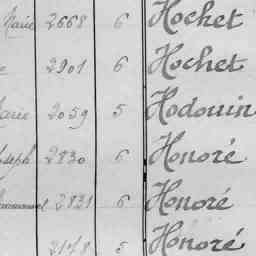 Marie 2668 6 Hochet
e 2901 6 Hochet
Marie 2059 5 Hodouin
oseph 2830 6 Honoré
2831 6 Honoré
2178 5 Honoré